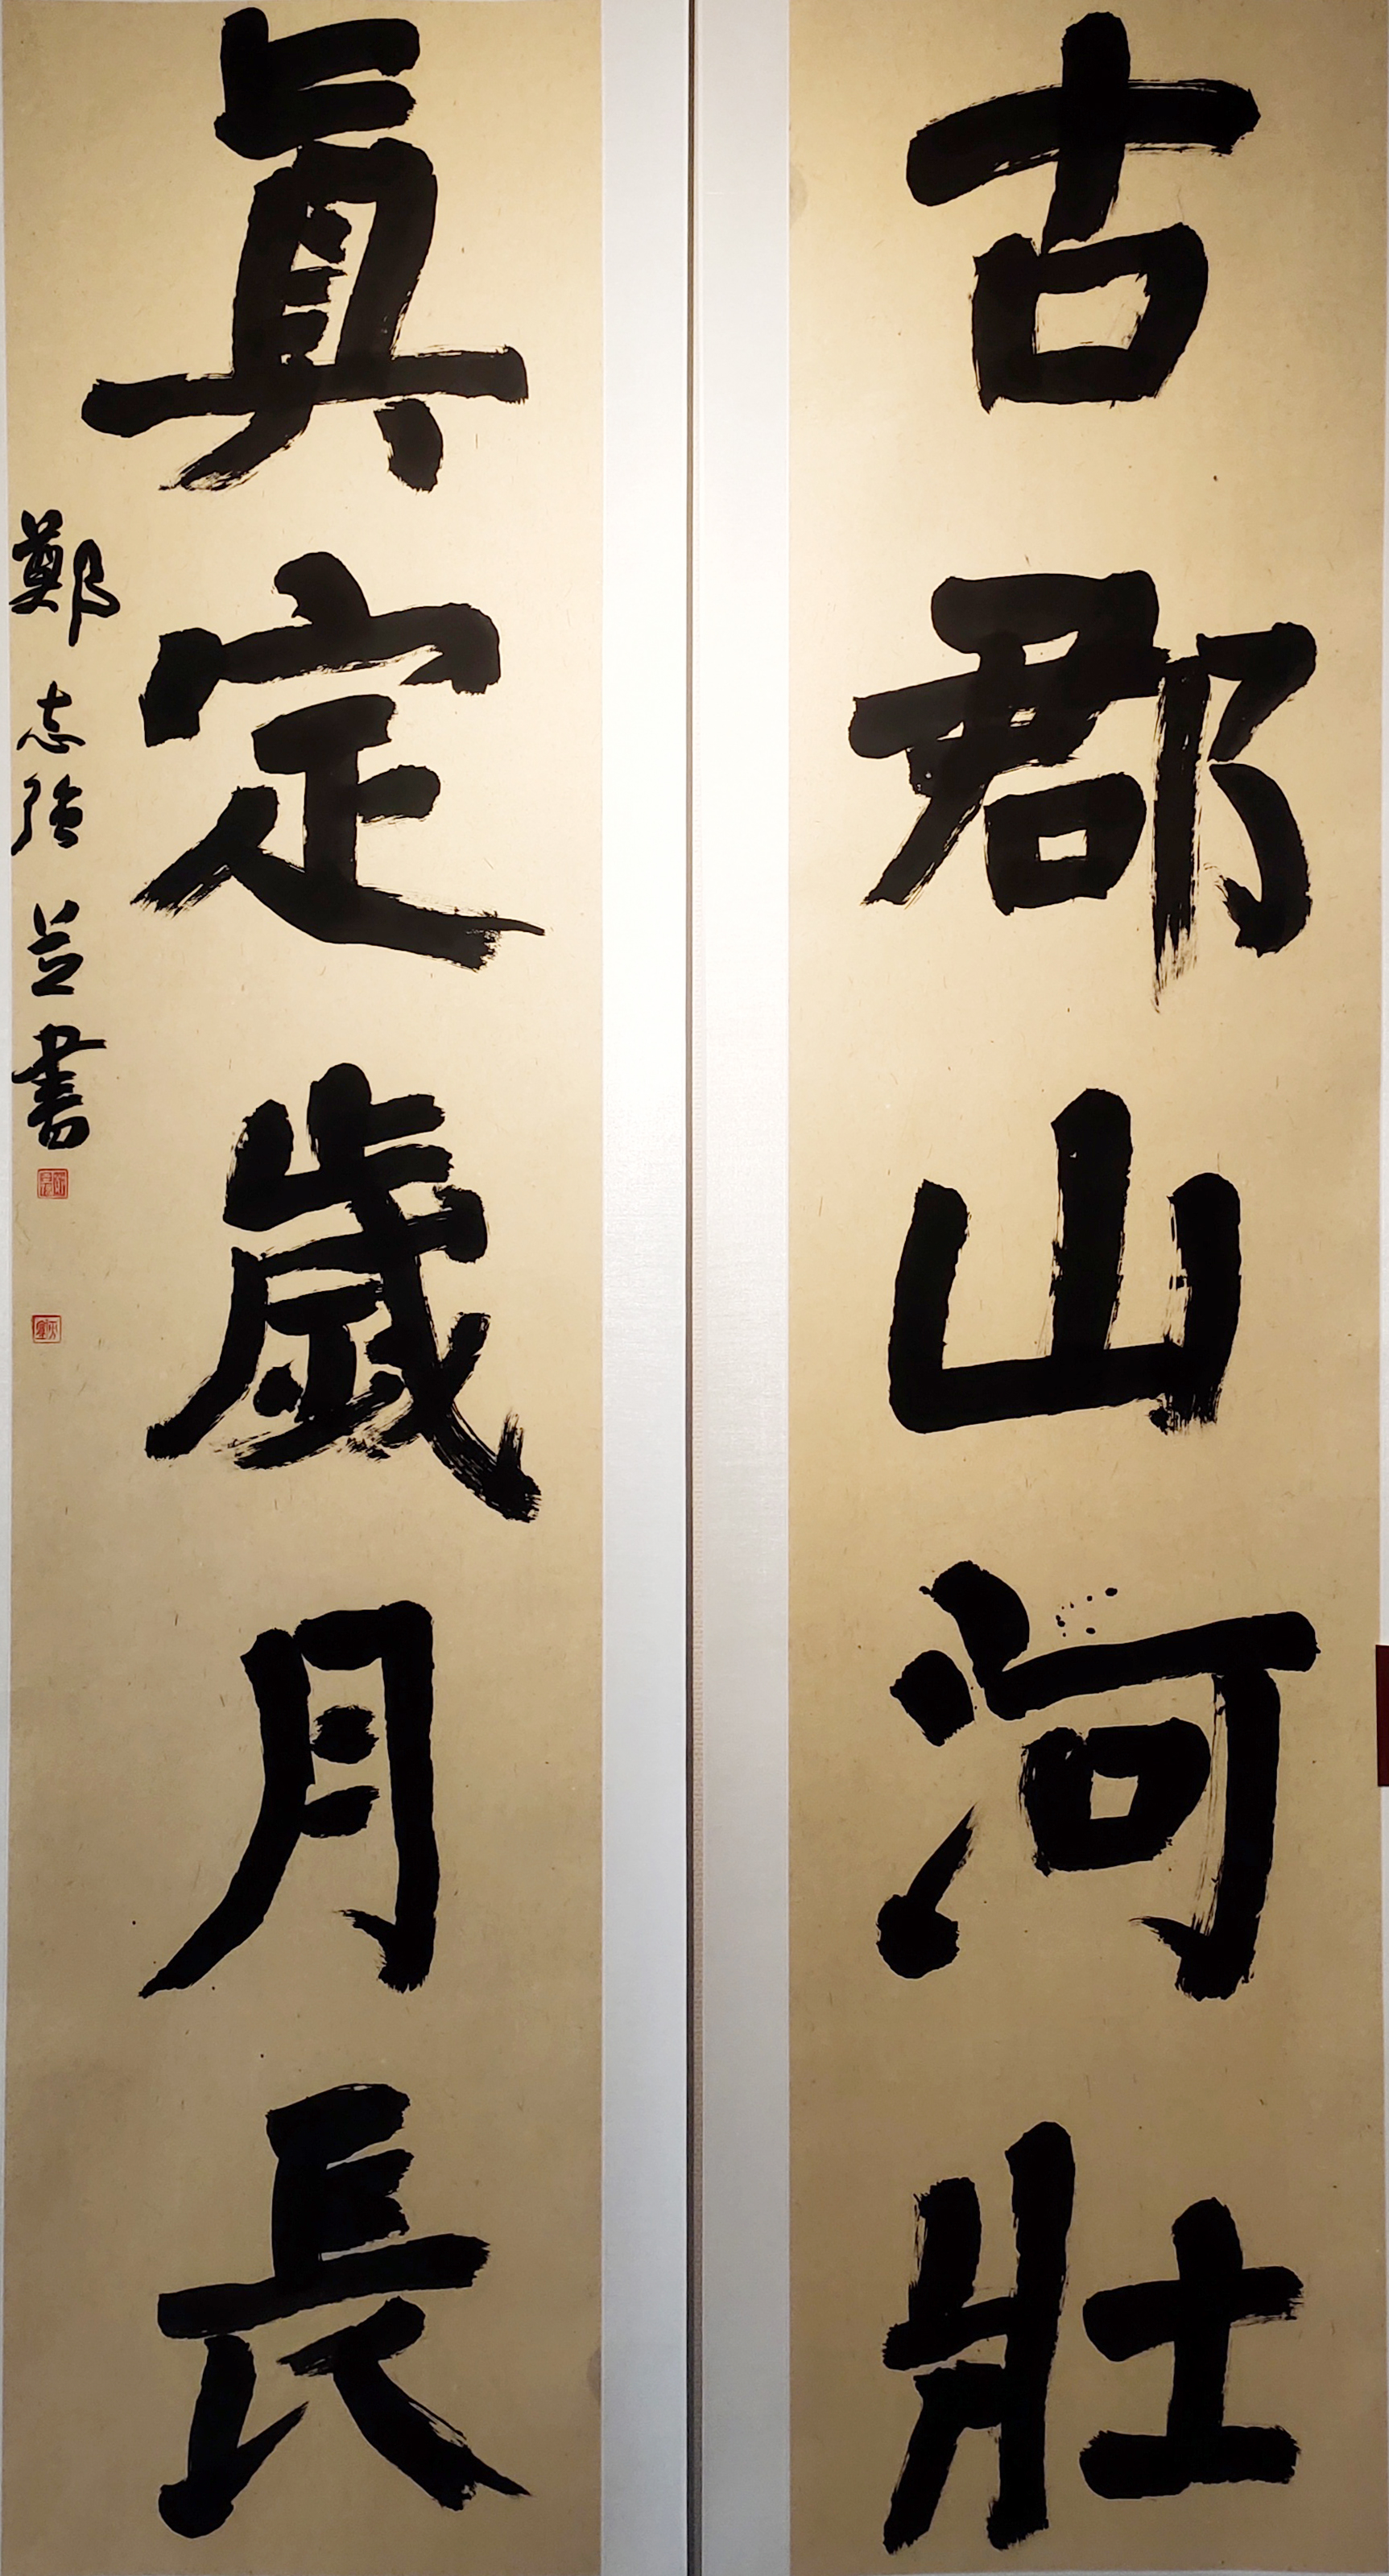 古郡山河壯
眞定歲月長
鄭志強並書